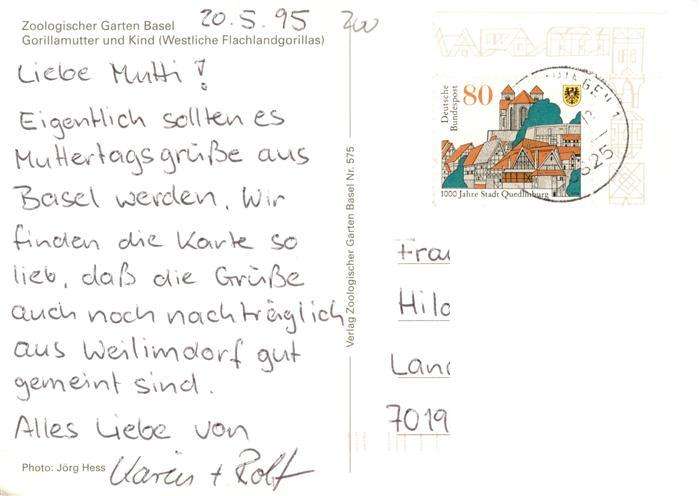 Zoologischer Garten Basel
Gorillamutter und Kind (Westliche Flachlandgorillas)
20.5.95
Zoo
Liebe Mutti!
Eigentlich sollten es
Muttertagsgrüße aus
Basel werden. Wir
finden die Karte so
lieb, daß die Grüße
auch noch nachträglich
aus Weilimdorf gut
gemeint sind.
Alles Liebe von
Karin + Rolf
Photo: Jörg Hess
Verlag Zoologischer Garten Basel Nr. 575
Deutsche
Bundespost
80
1000 Jahre Stadt Quedlinburg
Frau
Hild
Land
7019